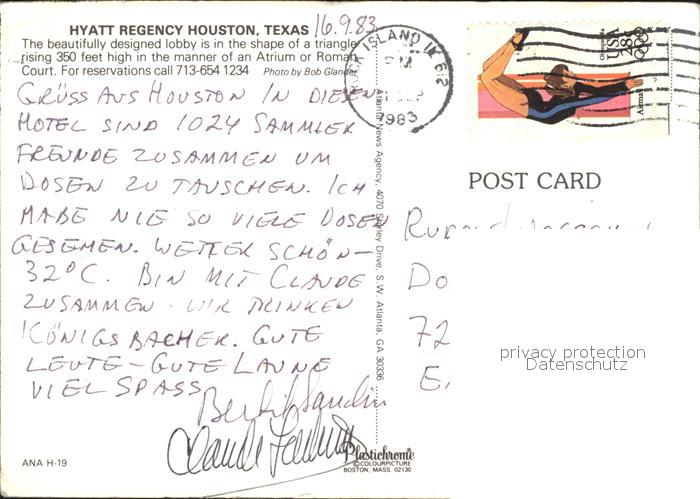 HYATT REGENCY HOUSTON, TEXAS 16.9.83
The beautifully designed lobby is in the shape of a triangle
rising 350 feet high in the manner of an Atrium or Roman
Court. For reservations call 713-654 1234 Photo by Bob Glander
GRÜSS AUS HOUSTON IN DIESEN
HOTEL SIND 1024 SAMMLER
FREUNDE ZUSAMMEN UM
DOSEN ZU TAUSCHEN. ICH
HABE NIE SO VIELE DOSEN
GESEHEN. WETTER SCHÖN-
32°C. BIN MIT CLAUDE
ZUSAMMEN - WIR TRINKEN
KÖNIGSBACHER. GUTE
LEUTE - GUTE LAUNE
VIEL SPASS
ANA H-19
Atlanta News Agency, 4070 Shirley Drive, S.W. Atlanta, GA 30336
Plastichrome
©COLOURPICTURE
BOSTON, MASS. 02130
ISLAND IL 612
PM
SEP
1983
USA
28c
Olympics
POST CARD
Do
72
privacy protection
Datenschutz